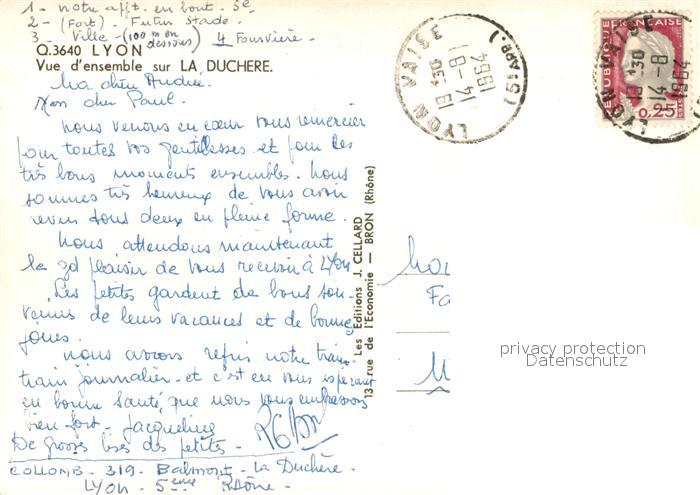 1 - notre appt. en bout - 5e
2 - (Fort) - Futur Stade -
3 - Ville - (100 m en dessous) 4 Fourvière -
Q.3640 LYON
Vue d'ensemble sur LA DUCHERE.
Ma chère Andrée.
Mon cher Paul.
Nous venons en cœur vous remercier
pour toutes vos gentillesses et pour les
très bons moments ensembles. Nous
sommes très heureux de vous avoir
revus tous deux en pleine forme.
Nous attendons maintenant
le gd plaisir de vous recevoir à Lyon
Les petites gardent de bons sou-
venirs de leurs vacances et de bonnes
joues.
Nous avons repris notre train-
train journalier - et c'est en vous espérant
en bonne santé, que nous vous embrassons
bien fort - Jacqueline
De grosses bises des petites -
COLLOMB - 319 - Balmont - La Duchère -
LYON - 5ème Rhône -
Les Editions J. CELLARD
13, rue de l'Economie — BRON (Rhône)
LYON VAISE
19H30
14-8
1964
REPUBLIQUE
0,25
LYON VAISE
19H30
14-8
1964
privacy protection
Datenschutz